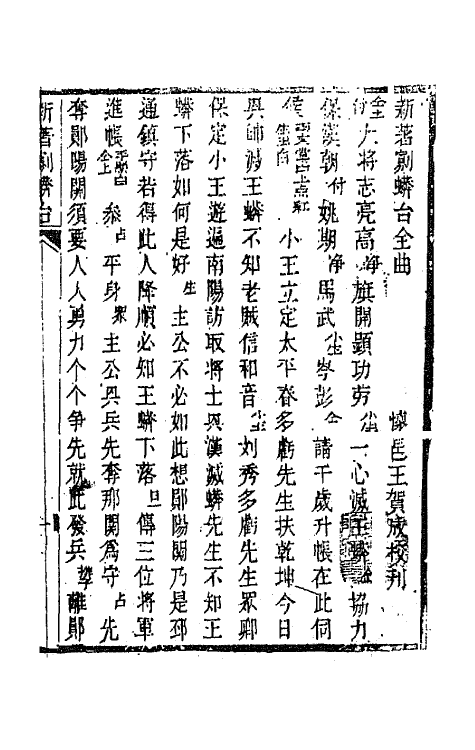 新著剮蟒台全曲　懷邑王賀成校刋
大将志亮高淨旗開顕功劳　一心滅王蟒　協力
保漢朝付姚期淨馬武　岑彭　請千歲升帳在此伺
　小王立定太平春多虧先生扶乾坤今日
興師滅王蟒不知老賊信和音　刘秀多虧先生眾卿
保定小王遊遍南陽訪取將士興漢滅蟒先生不知王
蟒下落如何是好生主公不必如此想鄖陽關乃是邳
通鎮守若得此人降順必知王蟒下落旦傳三位將軍
進帳　叅占平身衆主公興兵先奪那關為守占先
奪鄖陽開須要人人勇力个个争先就此發兵　離鄖
新著剮蟒台　一